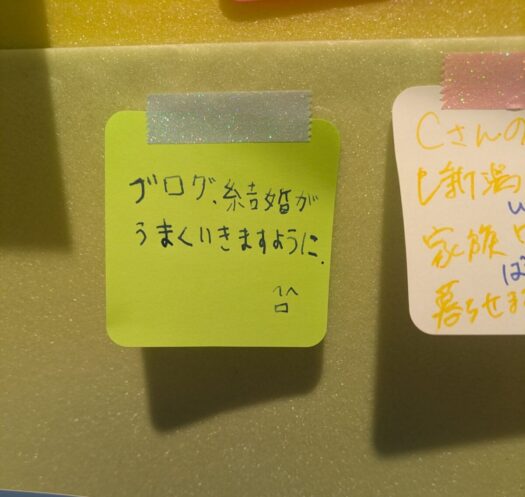 ブログ、結婚が
うまくいきますように.
Cさんの
家族
暮らせま